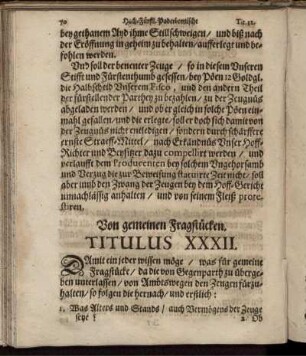 70 Hoch-Fürstl. Paderbornische Tit. 32.
bey gethanem Ayd ihme Stillschweigen / und diß nach
der Eröffnung in geheim zu behalten / aufferlegt und be-
fohlen werden.
Und soll der benenter Zeuge / so in diesem Unseren
Stifft und Fürstenthumb gesessen / bey Pöen 12 Goldgl.
die Halbscheid Unserem Fisco, und den andern Theil
der fürstellender Partheyen zu bezahlen / zu der Zeugnüs
abgeladen werden / und ob er gleich in solche Pöen ein-
mahl gefallen / und die erlegte / soller doch sich damit von
der Zeugnüs nicht entledigen / sondern durch schärffere
ernste Straeff-Mittel / nach Erkändnüs Unser Hoff-
Richter und Beysitzer dazu compelliert werden / und
verlaufft dem Producenten bey solchem Ungehorsamb
und Verzug die zur Beweisung statuirte Zeit nicht / soll
aber umb den Zwang der Zeugen bey dem Hoff-Gericht
unnachlässig anhalten / und von seinem Fleiß prote-
stiren.
Von gemeinen Fragstücken.
TITULUS XXXII.
DAmit ein jeder wissen möge / was für gemeine
Fragstück / da die von Gegenparth zu überge-
ben unterlassen / von Ambtswegen den Zeugen fürzu-
halten / so folgen die hernach / und erstlich:
1. Was Alters und Stands / auch Vermögens der Zeuge
seye?
2. Ob